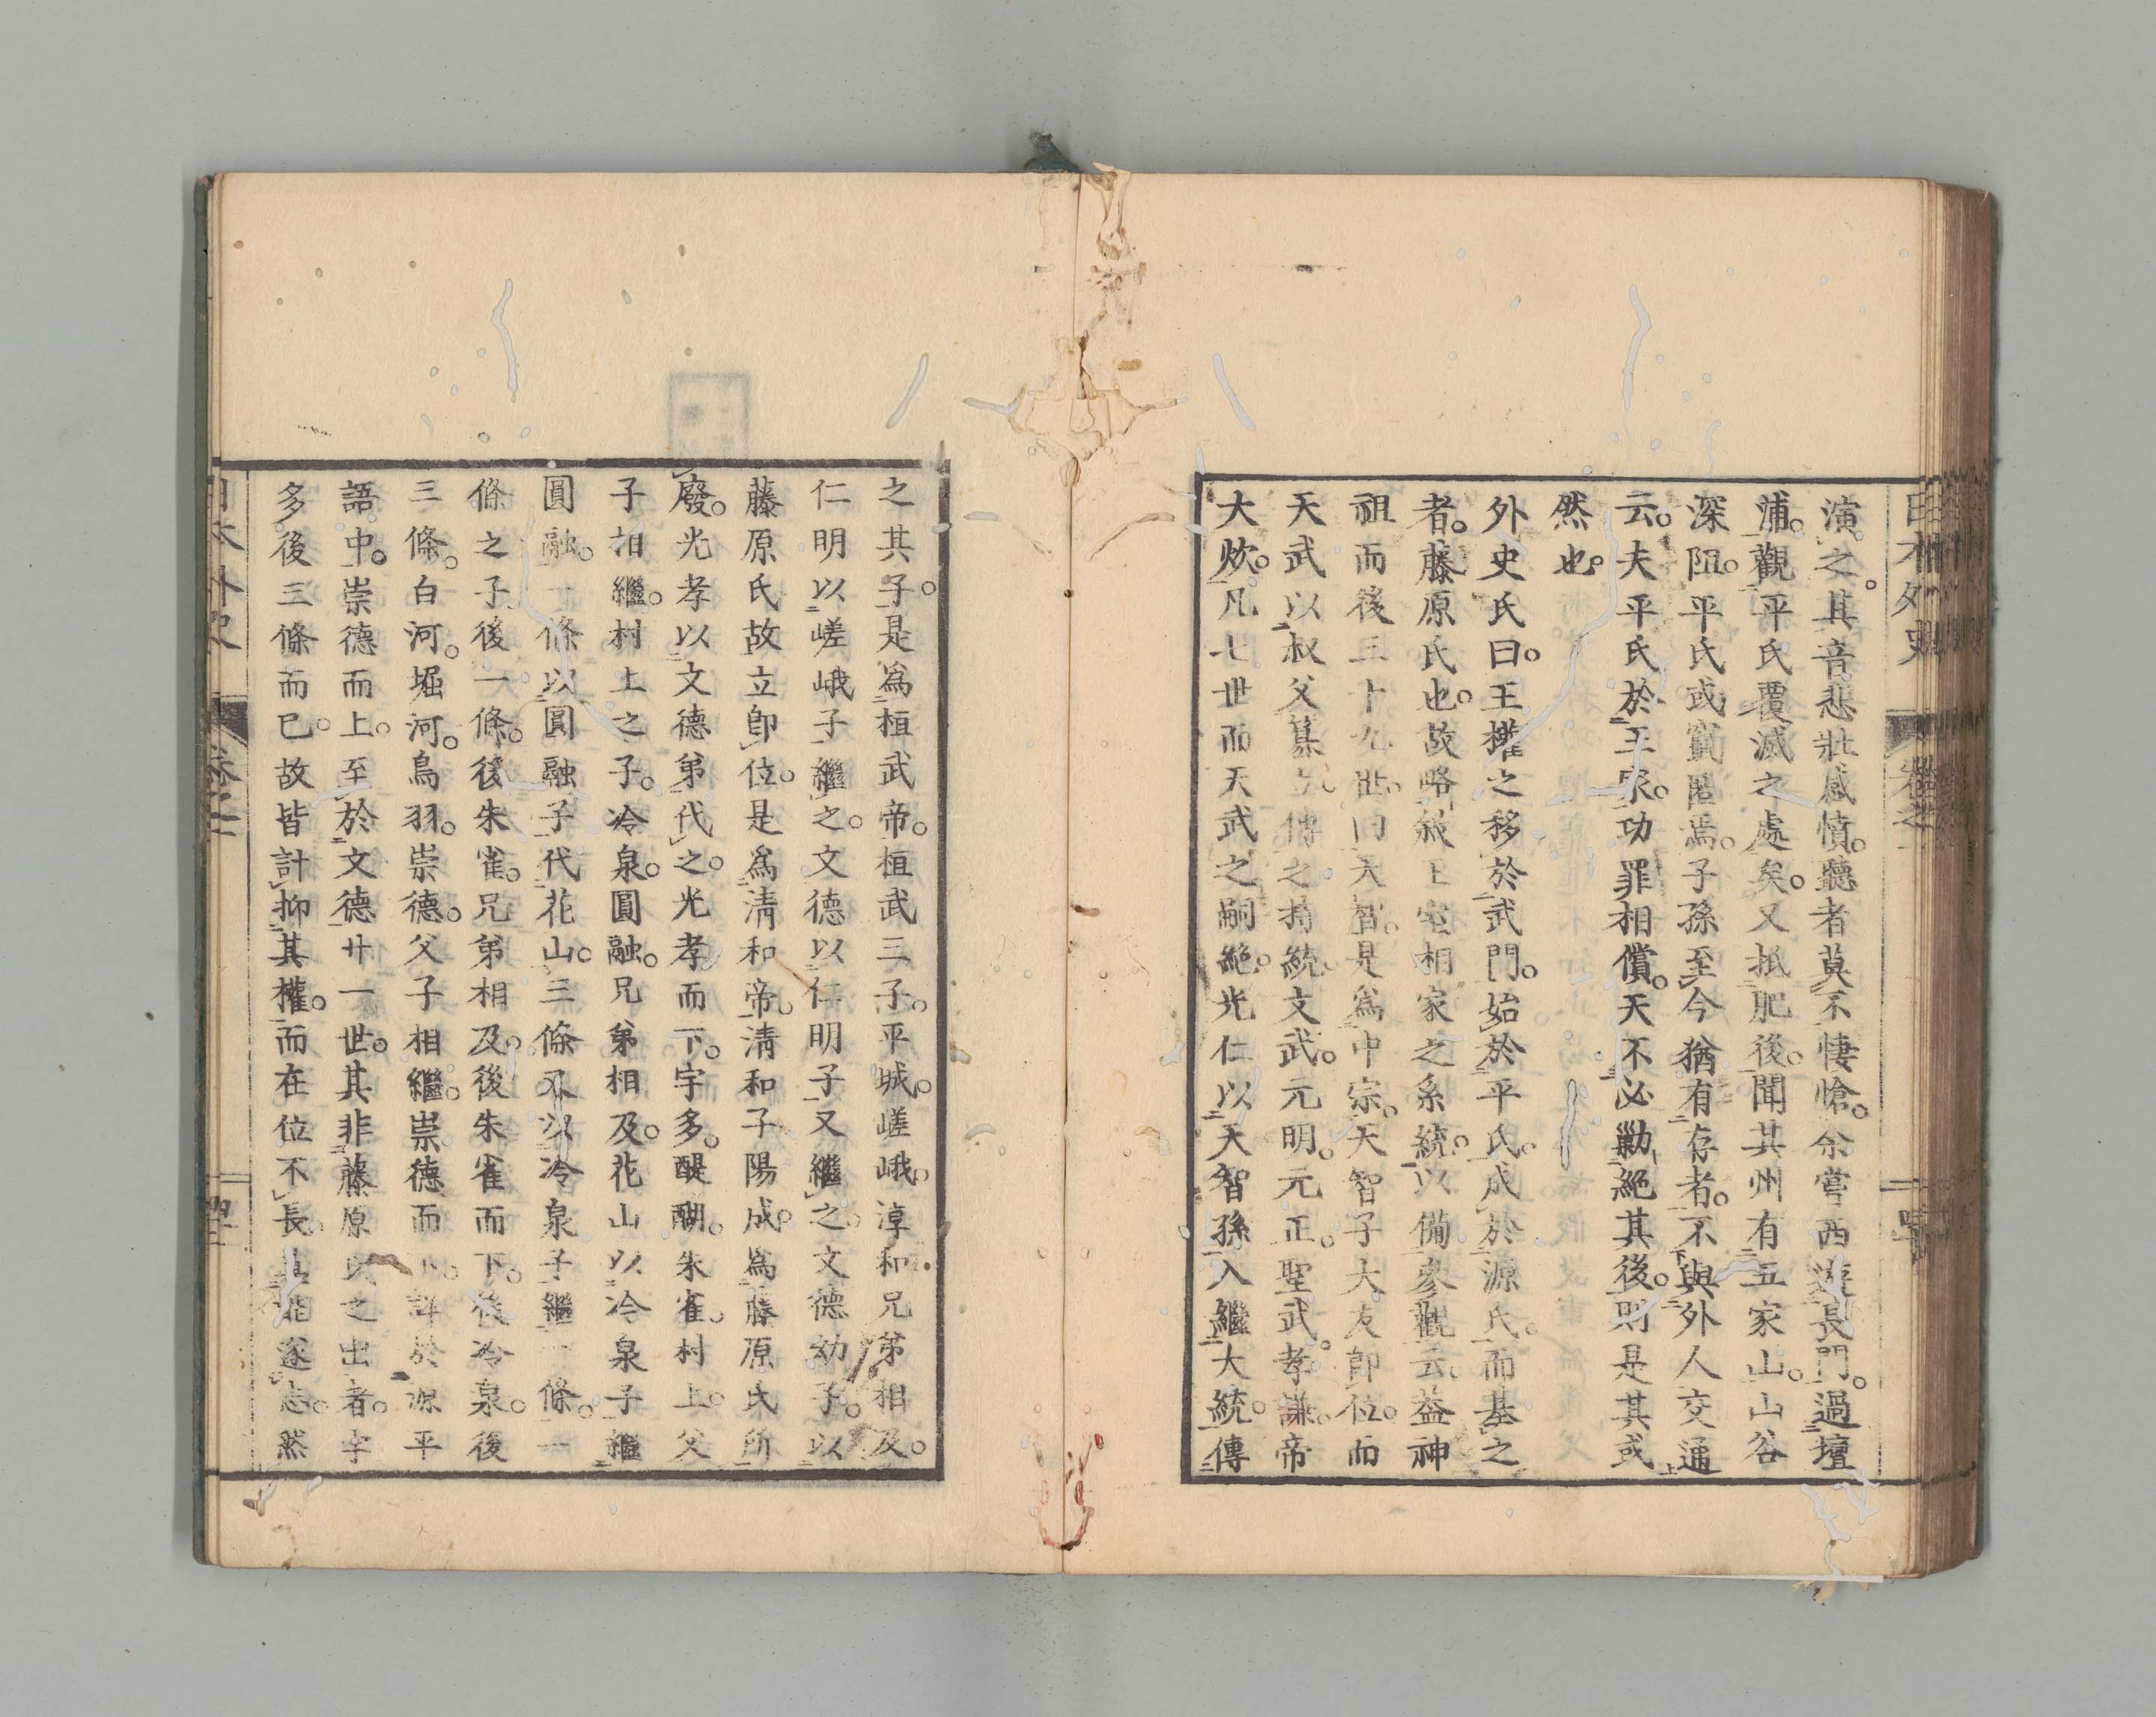 演之。其音悲壯感憤。聽者莫不悽愴。余嘗西遊長門。過壇
浦。觀平氏覆滅之處矣。又抵肥後。聞其州有五家山。山谷
深阻。平氏或竄匿焉。子孫至今猶有存者。不與外人交通
云。夫平氏於王家。功罪相償。天不必勦絕其後。則是其或
然也。
外史氏曰。王權之移於武門。始於平氏。成於源氏。而基之
者。藤原氏也。故略敍王室相家之系統。以備參觀云。蓋神
祖而後三十九世。曰天智。是爲中宗。天智子大友卽位。而
天武以叔父簒之。傳之持統。文武。元明。元正。聖武。孝謙。帝
大炊。凡七世而天武之嗣絕。光仁以天智孫入繼大統。傳
之其子。是爲桓武帝。桓武三子。平城。嵯峨。淳和兄弟相及。
仁明以嵯峨子繼之。文德以仁明子又繼之。文德幼子。以
藤原氏故立卽位。是爲淸和帝。淸和子陽成。爲藤原氏所
廢。光孝以文德弟代之。光孝而下。宇多。醍醐。朱雀。村上。父
子相繼。村上之子。冷泉。圓融。兄弟相及。花山以冷泉子繼
圓融。一條以圓融子代花山。三條又以冷泉子繼一條。一
條之子。後一條。後朱雀。兄弟相及。後朱雀而下。後冷泉。後
三條。白河。堀河。鳥羽。崇德。父子相繼。崇德而下。詳於源平
語中。崇德而上。至於文德廿一世。其非藤原氏之出者。宇
多後三條而已。故皆計抑其權。而在位不長。逐志。然
日本外史
卷之一
日本外史
卷之一